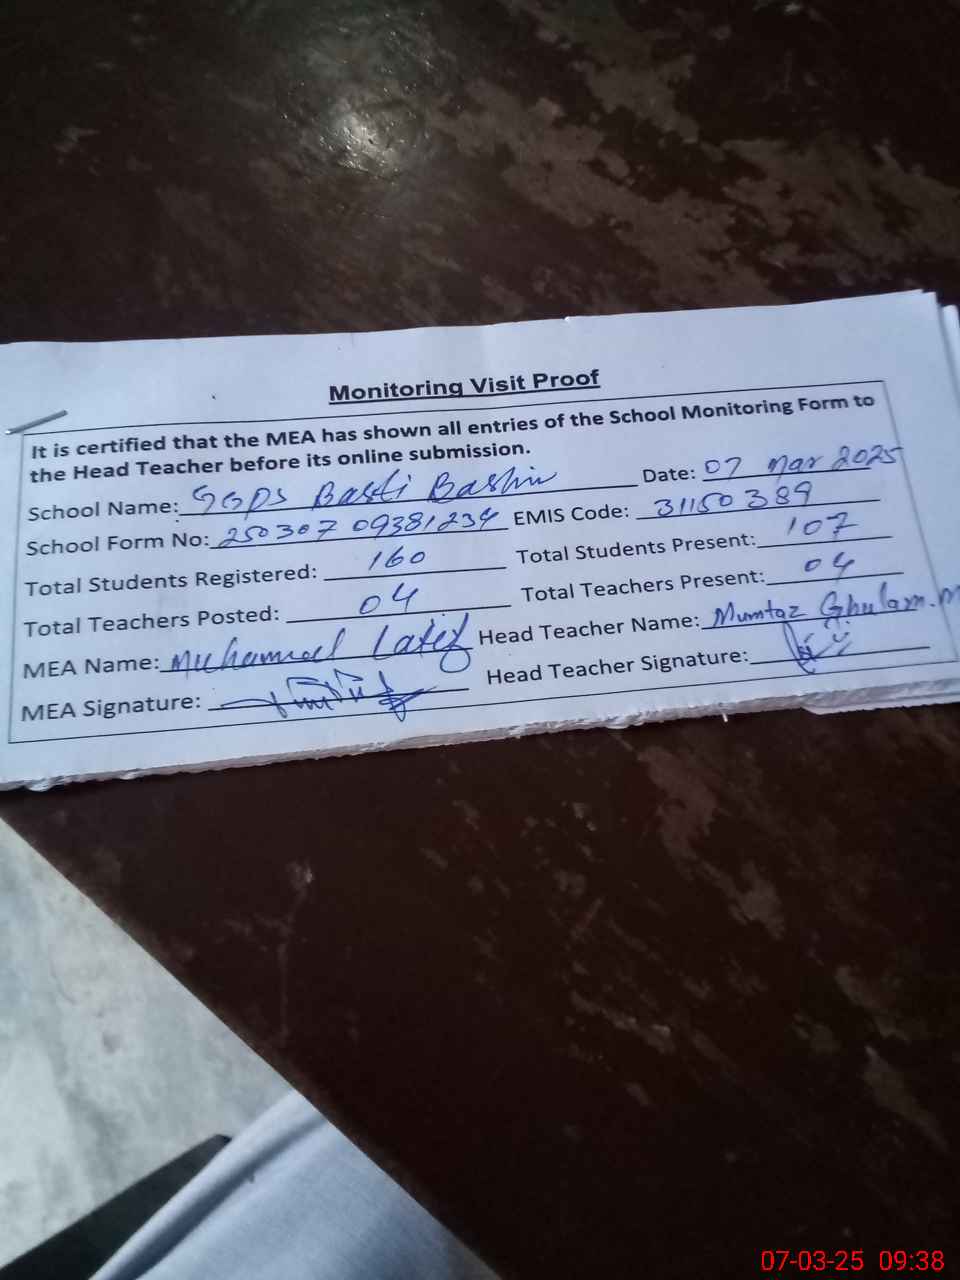 Monitoring Visit Proof
It is certified that the MEA has shown all entries of the School Monitoring Form to
the Head Teacher before its online submission.
School Name: GGPS Basti Bashir Date: 07 Mar 2025
School Form No: 250307 09381234 EMIS Code: 31150389
Total Students Registered: 160 Total Students Present: 107
Total Teachers Posted: 04 Total Teachers Present: 04
MEA Name: Muhammad Latif Head Teacher Name: Mumtaz Ghulam.M
MEA Signature: Head Teacher Signature:
07-03-25 09:38